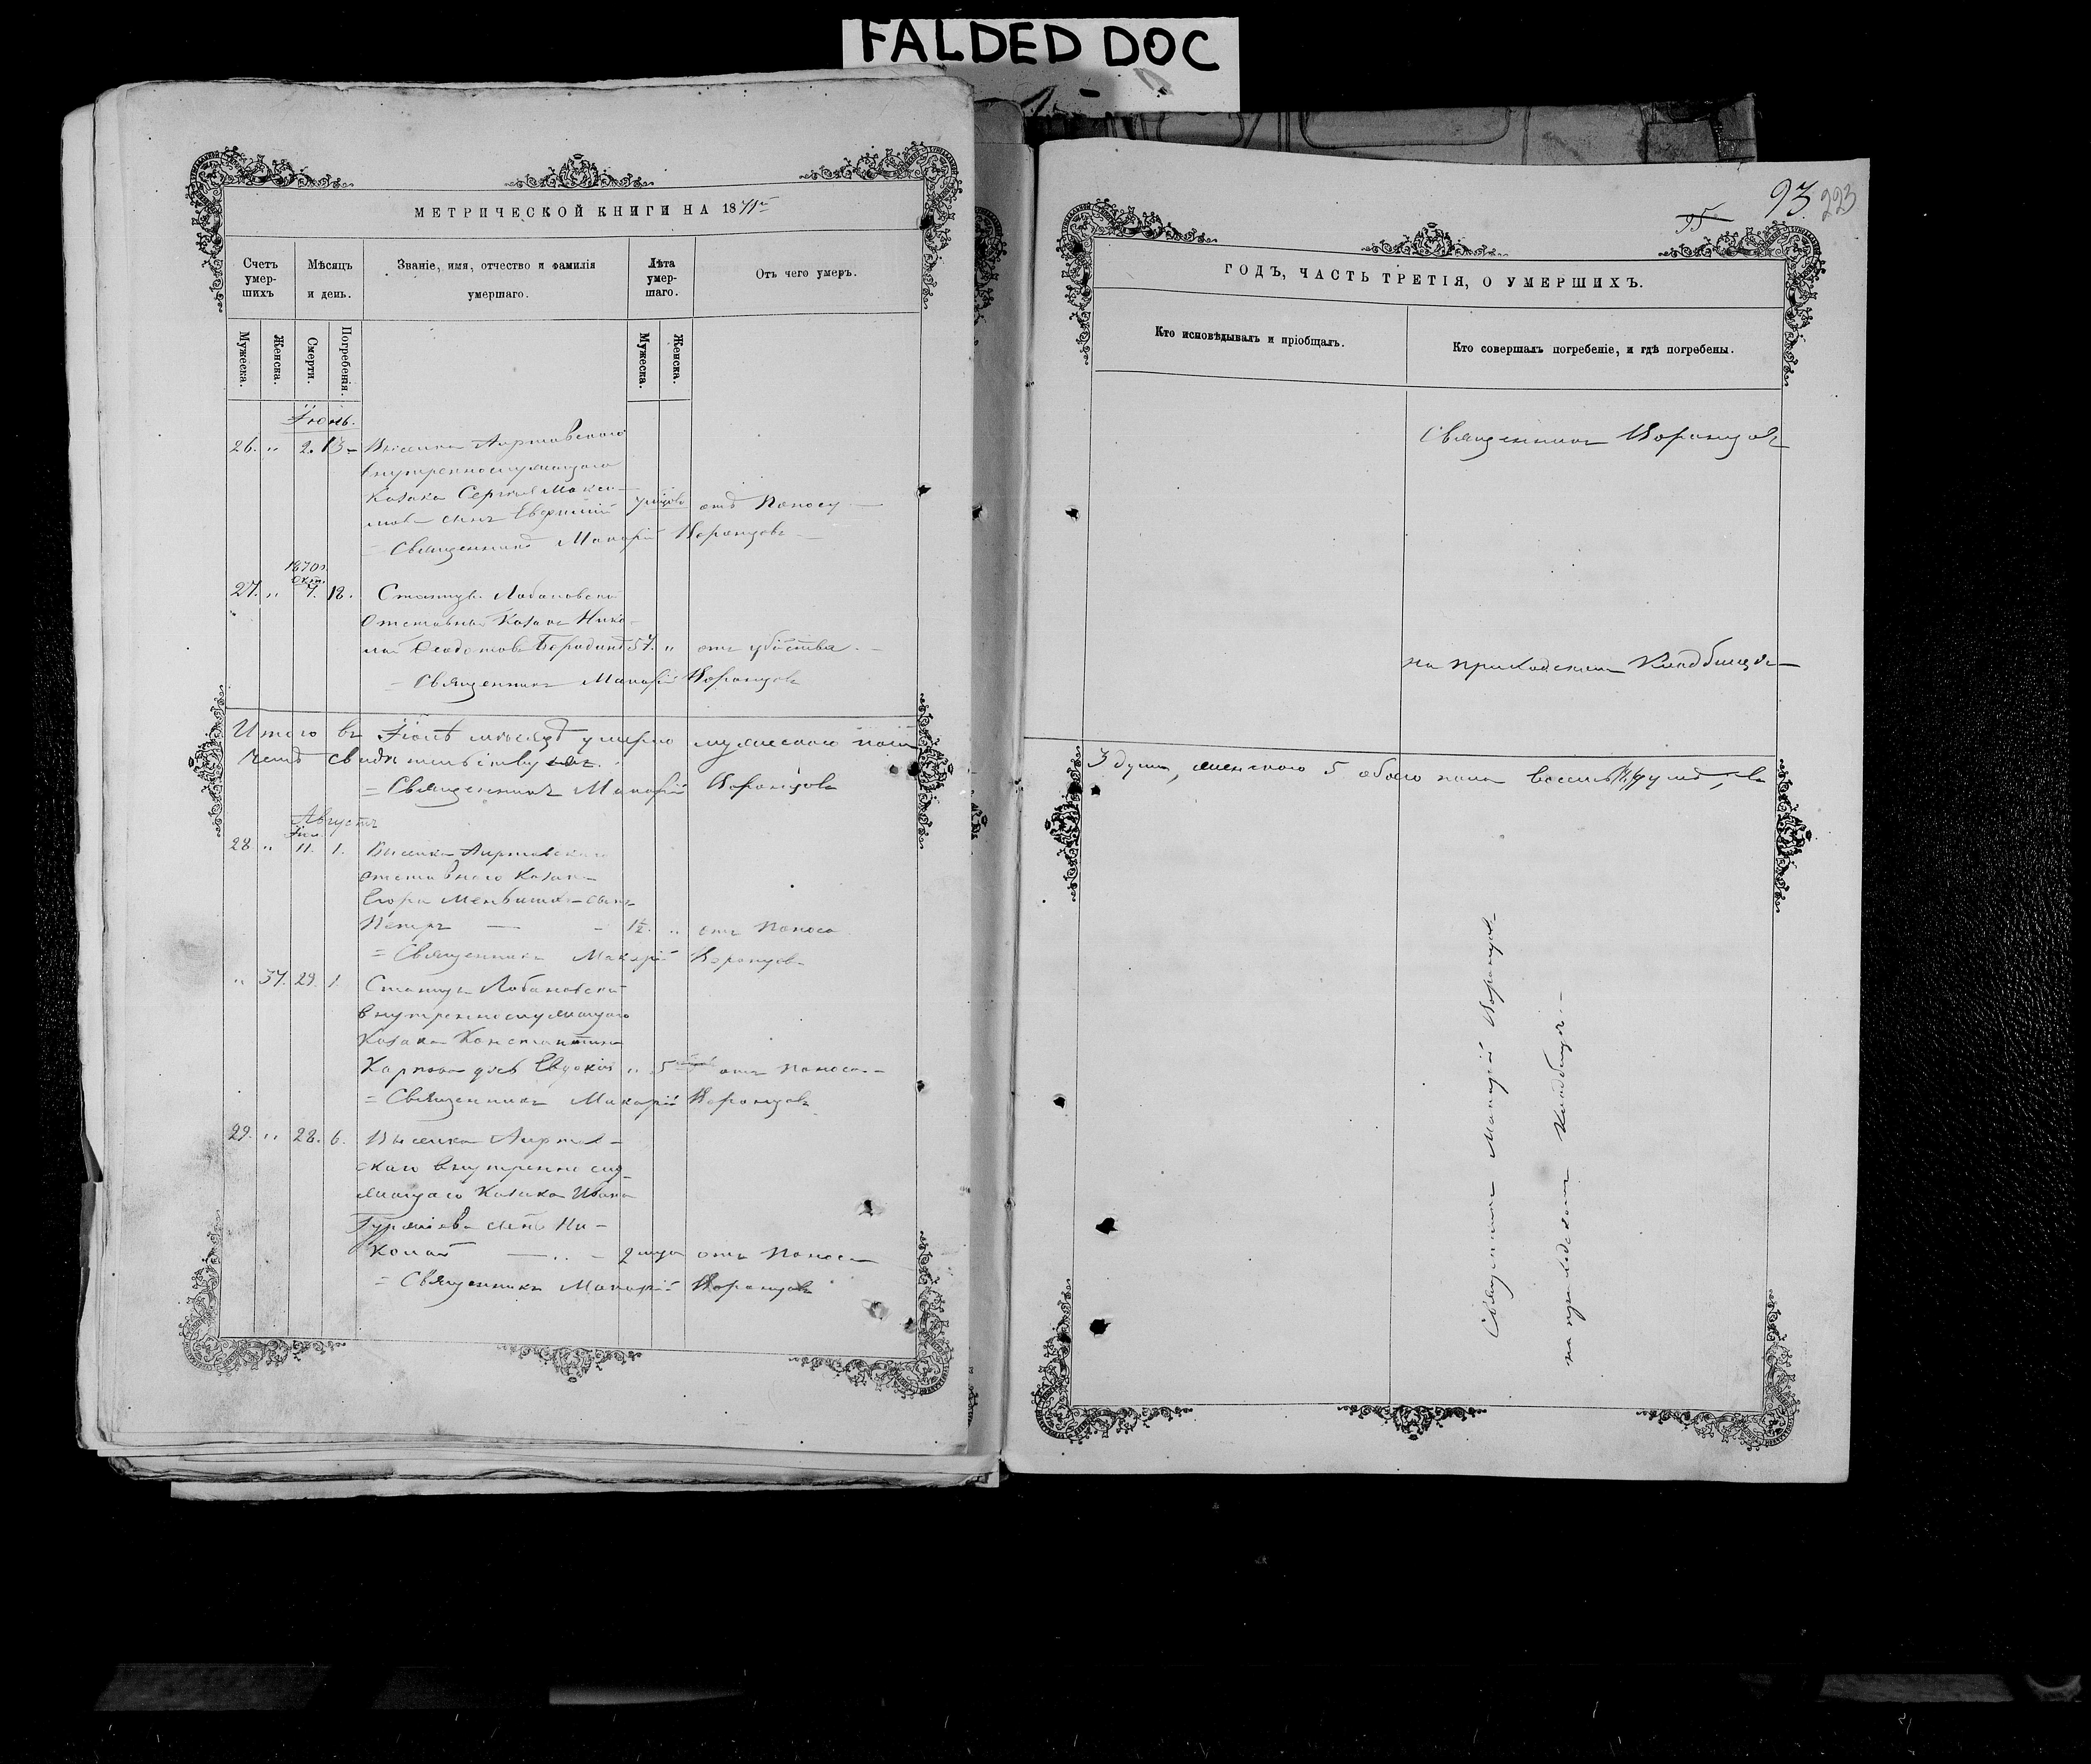 FALDED DOC
МЕТРИЧЕСКОЙ КНИГИ НА 1871
Счетъ умер-шихъ
Мѣсяцъ и день.
Званіе, имя, отчество и фамилія умершаго.
Лѣта умер-шаго.
Отъ чего умеръ.
Мужеска.
Женска.
Смерти.
Погребенія.
Мужеска.
Женска.
26. " 2. 13 Аиртавского
внутреннослужащаго
Козака Сергѣя Макси-
мова сынъ отъ Поносу
= Священникъ Макарій Воронцовъ
1870
Окт.
27. " 7. 18. Станицы Лобановской
Отставной Козакъ Нико-
лай Ѳеодотовъ Бородинъ 57. " отъ убійства
= Священникъ Макарій Воронцовъ
Итого въ Іюлѣ мѣсяцѣ умерло мужескаго пола
чемъ свидѣтельствуетъ.
= Священникъ Макарій Воронцовъ
Августъ
Іюл.
28 " 11. 1. Аиртавского
отставнаго Козака
Егора сынъ
Петръ 1½. " отъ Поноса
= Священникъ Макарій Воронцовъ
" 37. 29. 1. Станицы Лобановской
внутреннослужащаго
Козака Константина
Карпова дочь Евдокія " 5 отъ Поноса
= Священникъ Макарій Воронцовъ
29. " 28. 6. Аиртав-
скаго внутренно слу-
жащаго Козака Ивана
сынъ Ни-
колай отъ Поноса
= Священникъ Макарій Воронцовъ
93. 223
95
ГОДЪ, ЧАСТЬ ТРЕТІЯ, О УМЕРШИХЪ.
Кто исповѣдывалъ и пріобщалъ.
Кто совершалъ погребеніе, и гдѣ погребены.
Священникъ Воронцовъ
на приходскомъ Кладбищѣ
3 души, женского 5 обоего пола восемь душъ, въ
Священникъ Макарій Воронцовъ
на приходскомъ Кладбищѣ